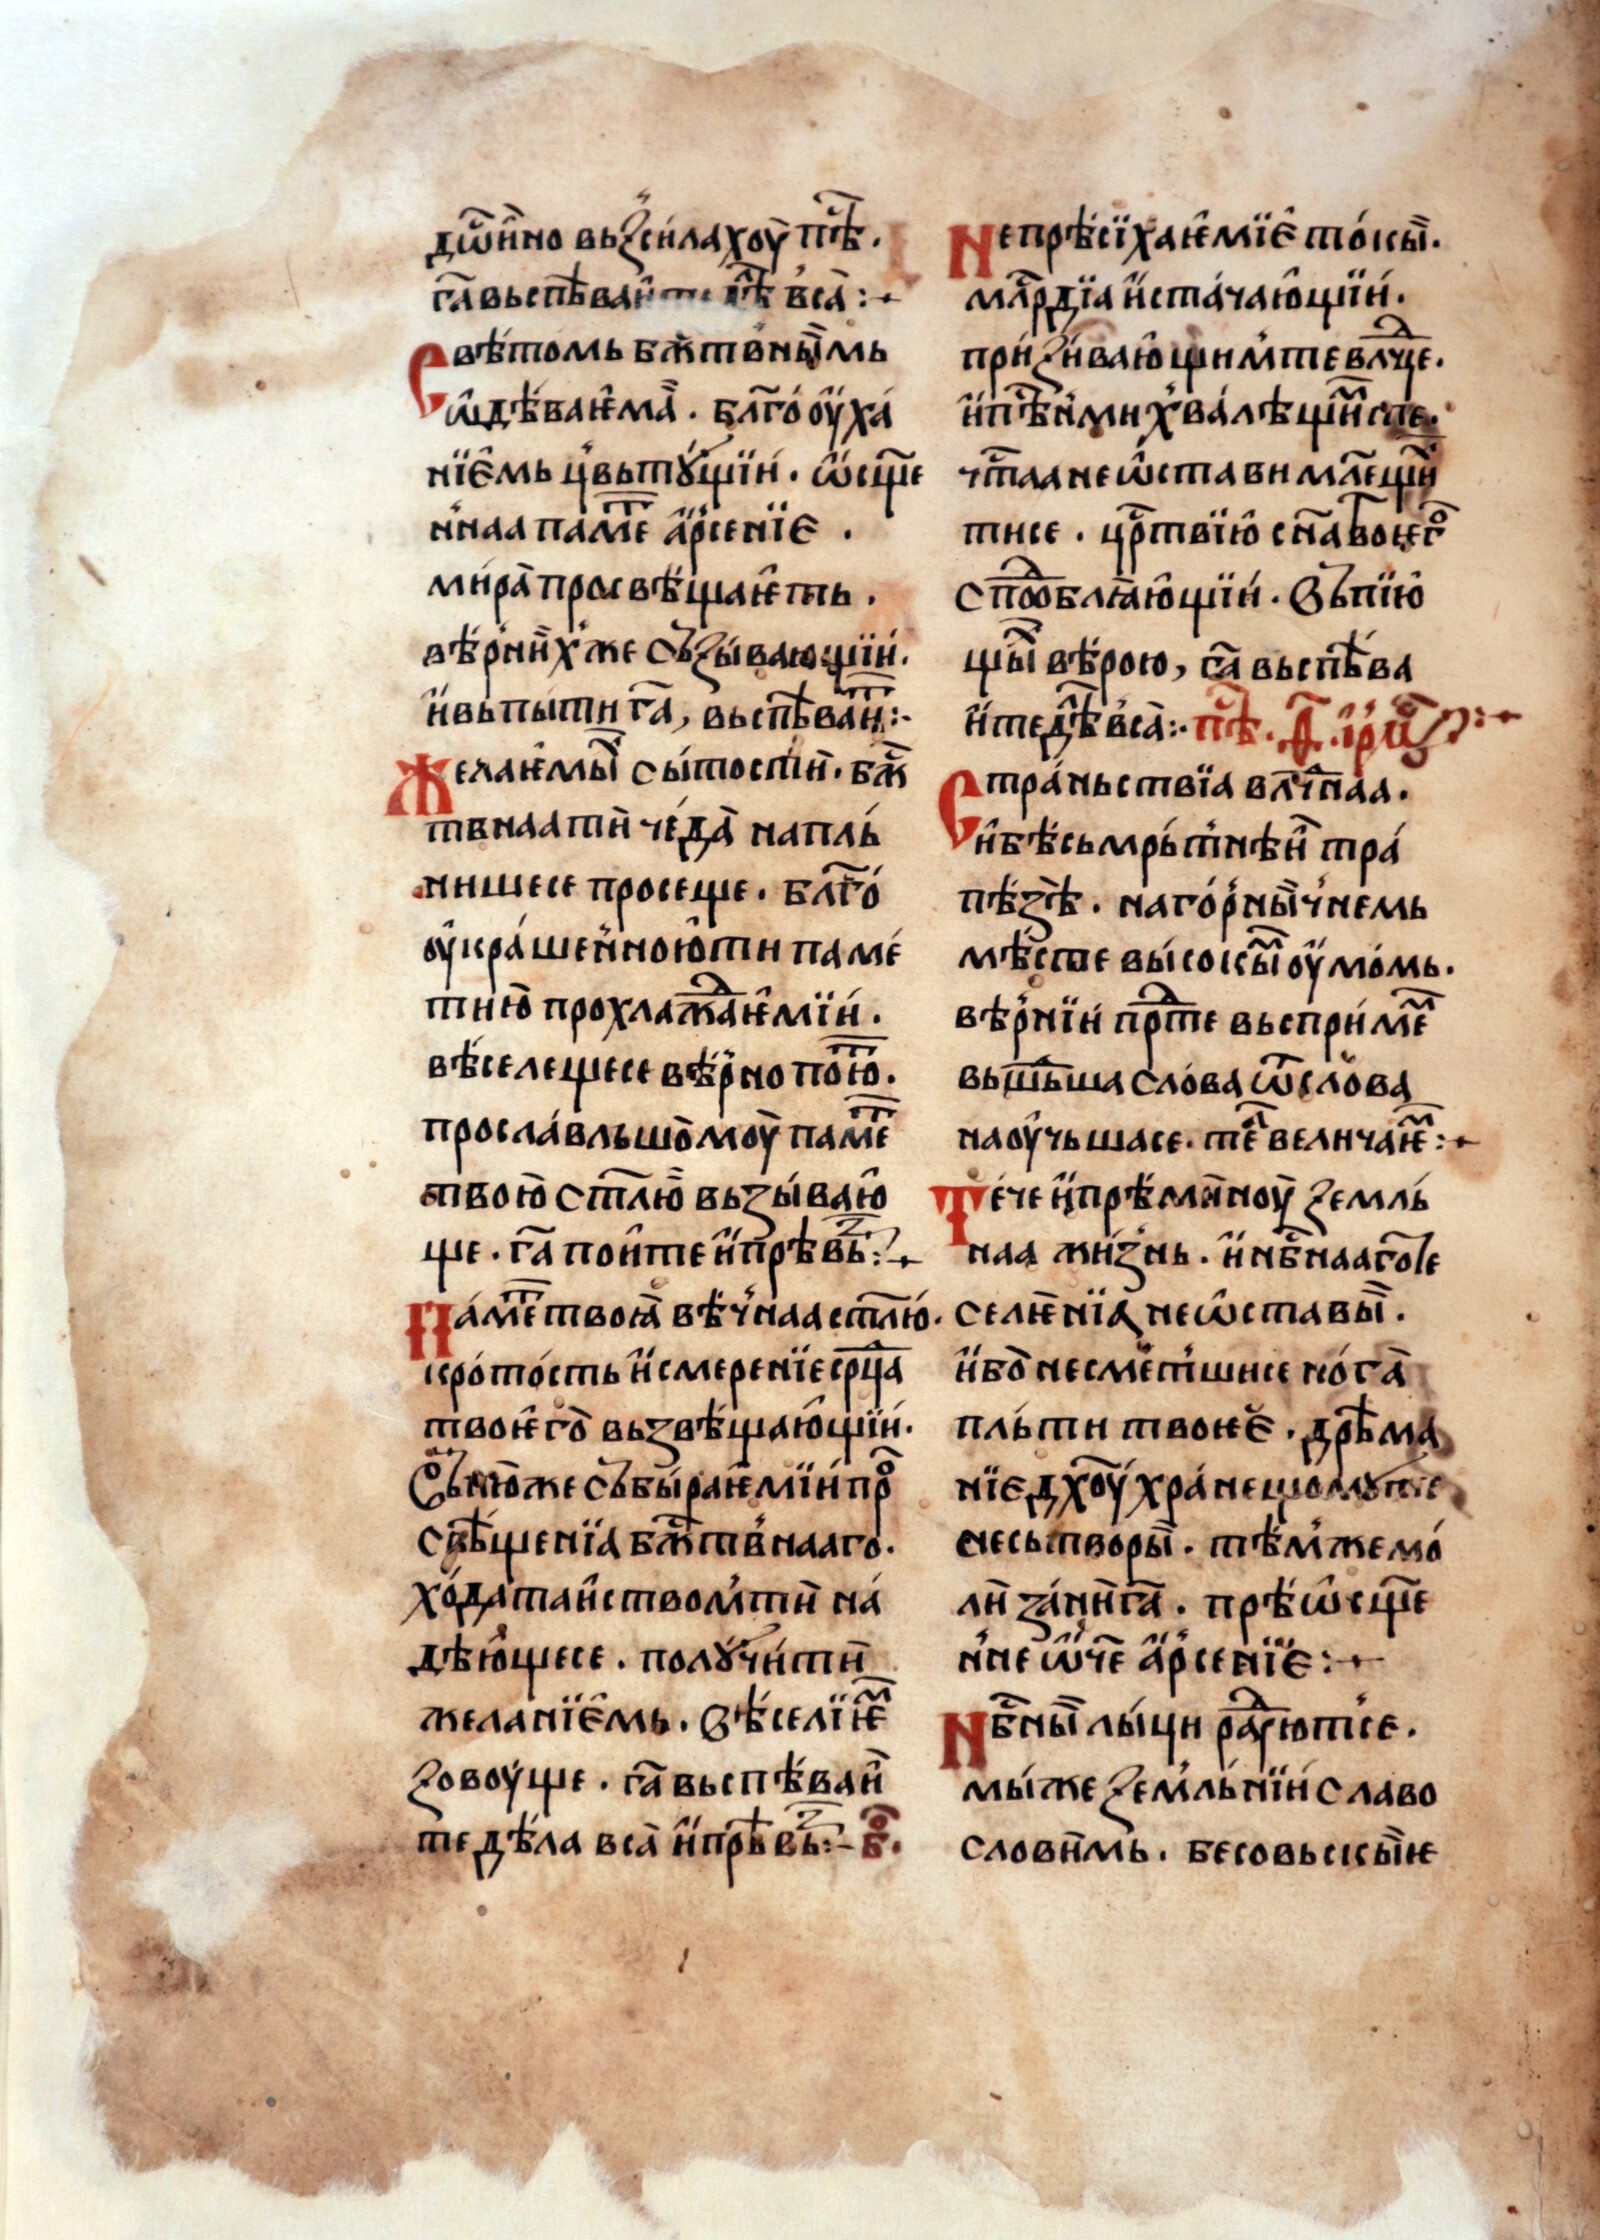 дѡ҃и҆но вьꙁси́лахоу пѣ҇.
га҃ вьспѣвай вса̀ :·
Свѣ́томь бж҇твны́мь
ѡ҆дѣ́ваѥма̀. блг҃ооу҆ха́
нїе҆мь цвьтꙋ́щїи. ѡ҆сще҃
ннаа паме҇ а҆рсенїе .
ми́ра просвѣщаѥть .
вѣ́рни́хже съꙁывающїи.
и҆ вьпыти га҃, вьспѣваи҇:·
Желаѥмы҇ сы́тости. бж҇
твнаа ти че́да напль́
нишесе просеще. блг҃о́
оу҆кра́шенною ти паме́
тию прохлаждаѥмїи.
вѣ́селещесе вѣ́рно пою҇.
просла́вльшомоу паме҇
твою ст҃лю вьꙁы́ваю
ще. га҃ пои҆те и҆ прѣвь҇:·
Па́ме҇ твоꙗ вѣ́чнаа ст҃лю.
кро́тость и҆ смеренїе срц҃а
твоѥго̀ вьꙁвѣ́щающїи.
Ѡ҆ нюже събы́раѥмїи про҇
свѣщенїа бж҇твнааго.
хо́датаиством ти на́
дѣ́ющесе. полꙋчи́ти
желанїе҆мь. Вѣ́селїѥ҇
ꙁовоу́ще. га҃ вьспѣ́ваи
те дѣ́ла вса̀ и҆ прѣвь҇:· бо҇.
Непрѣ́сїхаѥмїе то́кы.
млр҇дїа и҆ста́чающїи.
приꙁи́вающим те вл҇це.
и҆ пѣ҇ними хва́лѣщи҇ се.
чт҇аа не ѡ҆стави мл҃ещи
тисе . цр҇твїю сн҃а твоѥго҇
сподоблꙗ́ющїи. Въпїю
щы҇ вѣ́рою, га҃ вьспѣва
и҆те дѣ҇ вса̀:· пѣ҇. ѳ҃. і҆рмо҇ ꙁ :·
Стра́ньствїа влчⷣнаа.
и҆ бѣ́сьмрь́тнѣи тра́
пѣ́ꙁѣ. на го́рны́чнемь
мѣ́сте вы́сокы҇ оу҆мо́мь.
вѣ́рнїи прⷣте вьспри́ме҇
вьшь҇ша сло́ва ѿ сло́ва
наоу҆чьшасе. те҇ величаѥ҇:·
Те́че и҆ прѣмѝноу ꙁемль́
наа жи́ꙁнь. и҆ нб҇нааго же
селѥнїа не ѡ҆ставы҇.
и҆бо̀ не смѣтшисе но́га
пль́ти твоѥе. дрѣ́ма
нїе дх҃оу хра́нещомꙋ те
не сьтворы҇. тѣ́мже мо́
лѝ ꙁа ни га҃. прѣ́ѡсще҃
нне ѡ҆ч҃е а҆рсенїе:·
Нб҇ны҇ лы́ци раⷣуютсе.
мы́же ꙁе́мль́нїи славо
слови́мь. бесовьскы́ѥ